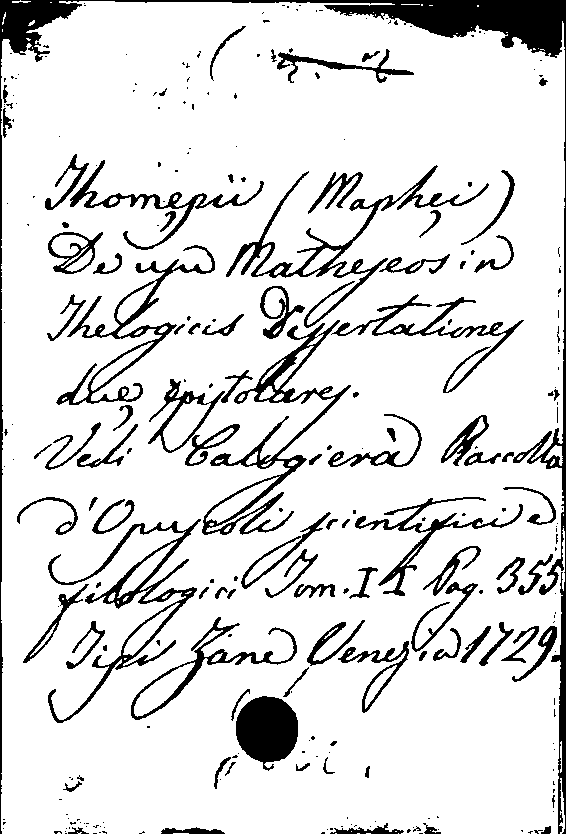 Thomępii (Maphęi)
De usu Matheseos in
Thelogicis Dissertationes
duę Epistolares.
Vedi Calogierà Raccolta
d'Opuscoli scientifici e
filologici Tom. II Pag. 355
Tipi Zane Venezia 1729.